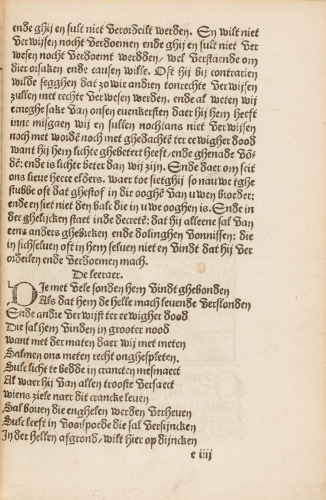 ende ghij en sult niet veroꝛdeilt werden. En wilt niet
verwijsen nocht verdoemen ende ghij en sult niet ver
wesen nocht verdoemt werdden, wel verstaende om
dier oꝛsaken ende causen wille. Oft hij bij contrarien
wilde segghen dat zo wie andien tonrechte verwijsen
zullen met rechte verwesen werden. ende al weten wij
eineghe sake van onsen euenkersten daer hij hem heeft
inne misgaen wij en sullen nochtans niet verwijsen
noch met woꝛdē noch met ghedachtē ter eewigher dood
want hij hem lichte ghebetert heeft, ende ghenade vō-
dē: ende is lichte beter dan wij zijn. Ende daer om seit
ons lieue heere elders. waer toe sietghij so nauwe tghe
stubbe oft dat ghestof in die ooghē van uwen bꝛoeder:
ende en siet niet den balc die in uwe ooghen is. Ende in
der ghelijcken staet inde decretē: dat hij alleene sal van
eens anders ghebꝛcken ende dolinghen vonnissen: die
in sichseluen oft in hem seluen niet en vindt dat hij ver
oꝛdeilen ende verdoemen mach.
De leeraer.
Die met vele sonden hem vindt ghebonden
Als dat hem de helle mach leuende verslonden
Ende andie verwijst ter eewigher dood
Die sal hem vinden in grooter nood
want met der maten daer wij met meten
Salmen ons meten recht onghespleten.
Sulc licht te bedde in crancten mesmaect
Al waer hij van allen trooste versaect
wiens ziele naer dit crancke leuen
Sal bouen die enghelen werden verheuen
Sulc leeft in vooꝛspoede die sal versijncken
In der hellen afgrond, wilt hier op dijncken
e iiij